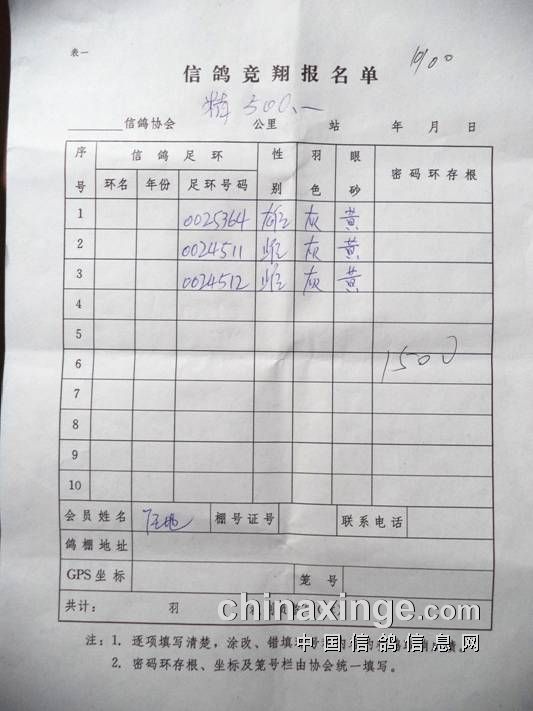 表一
信鸽竞翔报名单
500.—
信鸽协会 公里 站 年 月 日
序号 信鸽足环 性别 羽色 眼砂 密码环存根
环名 年份 足环号码
1 0025364 雄 灰 黄
2 0024511 雌 灰 黄
3 0024512 雌 灰 黄
4
5
6 1500
7
8
9
10
会员姓名 棚号证号 联系电话
鸽棚地址
GPS坐标 笼号
共计: 羽
chinaxinge.com
中国信鸽信息网
注:1. 逐项填写清楚,涂改、错填
2. 密码环存根、坐标及笼号栏由协会统一填写。